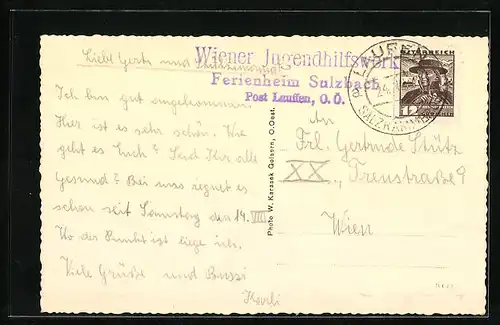 Wiener Jugendhilfswerk
Ferienheim Sulzbach
Post Lauffen, O.Ö.
LAUFFEN
SALZKAMMER
ÖSTERREICH
12
GROSCHEN
Liebe Gerta und
Ich bin gut angekommen.
Hier ist es sehr schön. Wie
geht es Euch? Seid Ihr alle
Gesund? Bei uns regnet es
schon seit Samstag den 14. VIII
Wo der Punkt ist liege ich.
Viele Grüße und Bussi
Photo W. Karasek Goisern, O.Oest.
An
Frl. Gertrude Stütz
XX., Treustraße 9
Wien